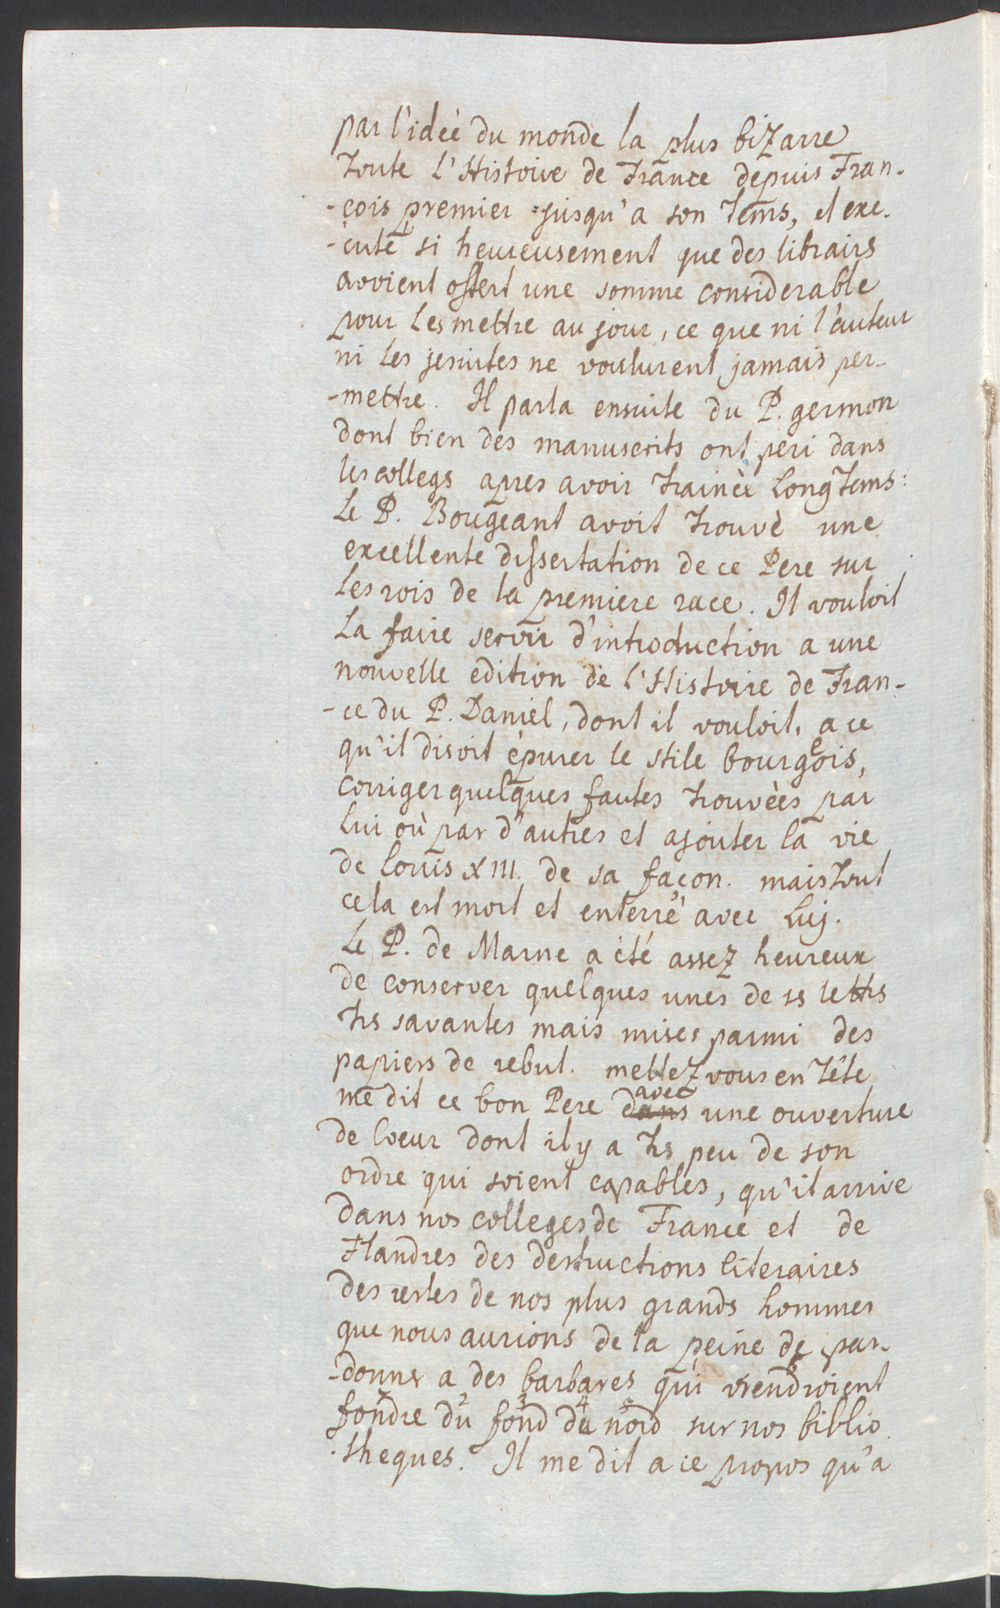 par l'ideè du monde la plus biZarre
toute l'Histoire de France depuis Fran-
-çois premier jusqu'a son tems, et exe-
-cuté si heureusement que des librairs
avoient offert une somme considerable
pour les mettre au jour, ce que ni l'auteur
ni les jesuites ne voulurent jamais per-
-mettre. Il parla ensuite du P. germon
dont bien des manuscrits ont peri dans
les collegs apres avoir trainèr longtems:
Le P. Bougeant avoit trouvè une
excellente dissertation de ce Pere sur
les rois de la premiere race. Il vouloit
La faire servir d'introduction a une
nouvelle edition de l'Histoire de Fran-
-ce du P. Daniel, dont il vouloit, a ce
qu'il disoit èpurer le stile bourgeois,
corriger quelques fautes trouvèes par
lui où par d'autres et ajouter la vie
de louis XIII. de sa façon. mais tout
cela est mort et enterré avec Luj.
Le P. de Marne a été assez heureux
de conserver quelques unes de ss letths
ths savantes mais mises parmi des
papiers de rebut. mettez vous en tête
me dit ce bon Pere dans avec une ouverture
de Coeur dont il y a ths peu de son
ordre qui soient capables, qu'il arrive
dans nos colleges de France et de
Flandres des destructions literaires
des restes de nos plus grands hommes
que nous aurions de la peine de par-
-donner a des barbares qui viendroient
fondre du fond du nord sur nos biblio
-theques. Il me dit a ce propos qu'a